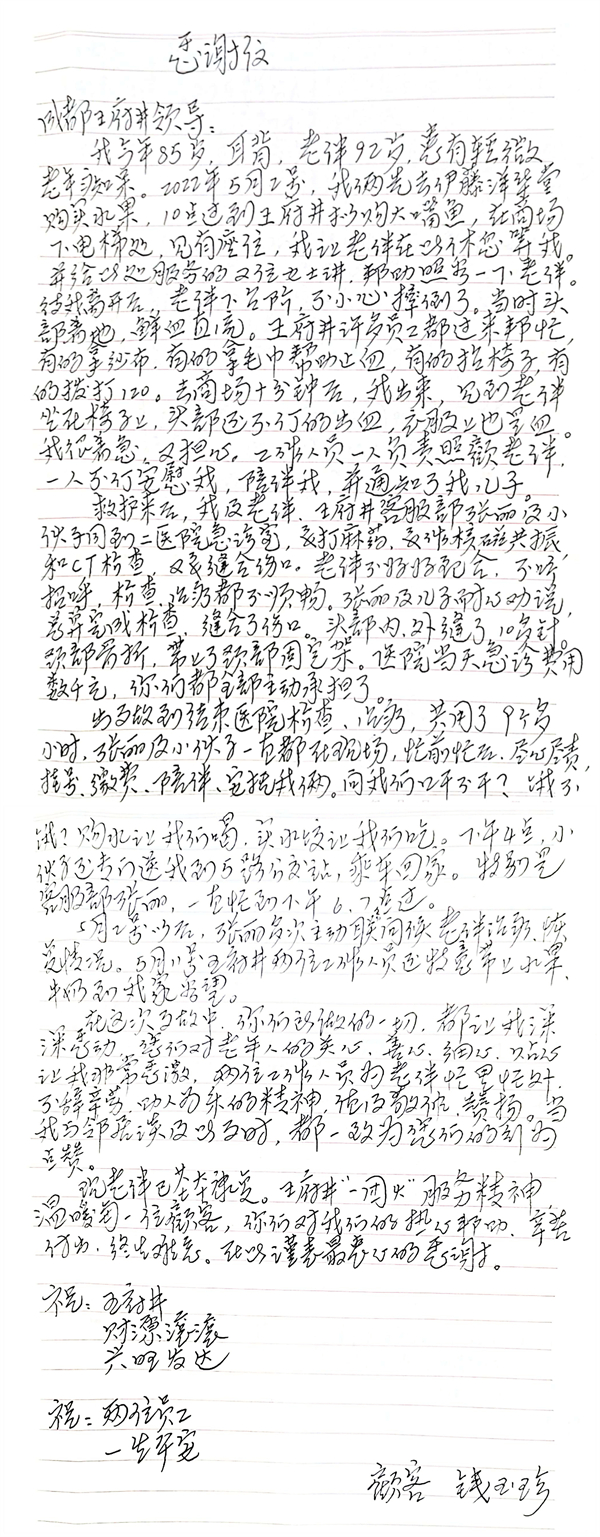 感谢信
成都王府井领导：
我今年85岁，耳背，老伴92岁，患有轻微
老年痴呆。2022年5月2号，我俩先去伊藤洋华堂
购买水果，10点过到王府井打购大嘴鱼，在商场
下电梯处，见有座位，我让老伴在此休息等我。
并给此处服务的又位女士讲，帮助照看一下老伴。
待我离开后，老伴下台阶，不小心摔倒了。当时头
部着地，鲜血直流。王府井许多员工都过来帮忙，
有的拿纱布，有的拿毛巾帮助止血，有的抬椅子，有
的拨打120。去商场十分钟后，我出来，见到老伴
坐在椅子上，头部还不停的出血，衣服上也是血。
我很着急，又担心。工作人员一人负责照顾老伴，
一人不停安慰我，陪伴我，并通知了我儿子。
救护来后，我及老伴、王府井客服部张丽及小
伙子同到二医院急诊室，要打麻药，要作核磁共振，
和CT检查，又要缝合伤口。老伴不好好配合，不听
招呼，检查、治疗都不顺畅。张丽及儿子耐心劝说，
总算完成检查，缝合了伤口。头部内、外缝了10多针。
颈部骨折，带上了颈部固定架。医院当天急诊费用
数千元，你们都全部主动承担了。
出事故到结束医院检查、治疗，共用了9个多
小时，张丽及小伙子一直都在现场，忙前忙后，尽心尽责，
挂号、缴费、陪伴、安抚我俩。问我们口干不干？饿不
饿？购水让我们喝，买水饺让我们吃。下午4点，小
伙子还专门送我到5路公交站，乘车回家。特别是
客服部张丽，一直忙到下午6、7点过。
5月2号以后，张丽多次主动联系问候老伴治疗、恢
复情况。5月11号王府井两位工作人员还特意带上水果、
牛奶到我家看望。
在这次事故中，你们所做的一切，都让我深
深感动，您们对老年人的关心、善心、细心、
让我非常感激，两位工作人员为老伴忙里忙外，
不辞辛劳，助人为乐的精神，值得敬佩、赞扬。当
我与邻居谈及此事时，都一致为您们的行为
点赞。
现老伴已基本康复。王府井“一团火”服务精神
温暖每一位顾客，你们对我们的热心帮助、辛苦
付出，终生难忘。在此谨表最衷心的感谢。
祝：王府井
财源滚滚
兴旺发达
祝：两位员工
一生平安
顾客 钱玉珍